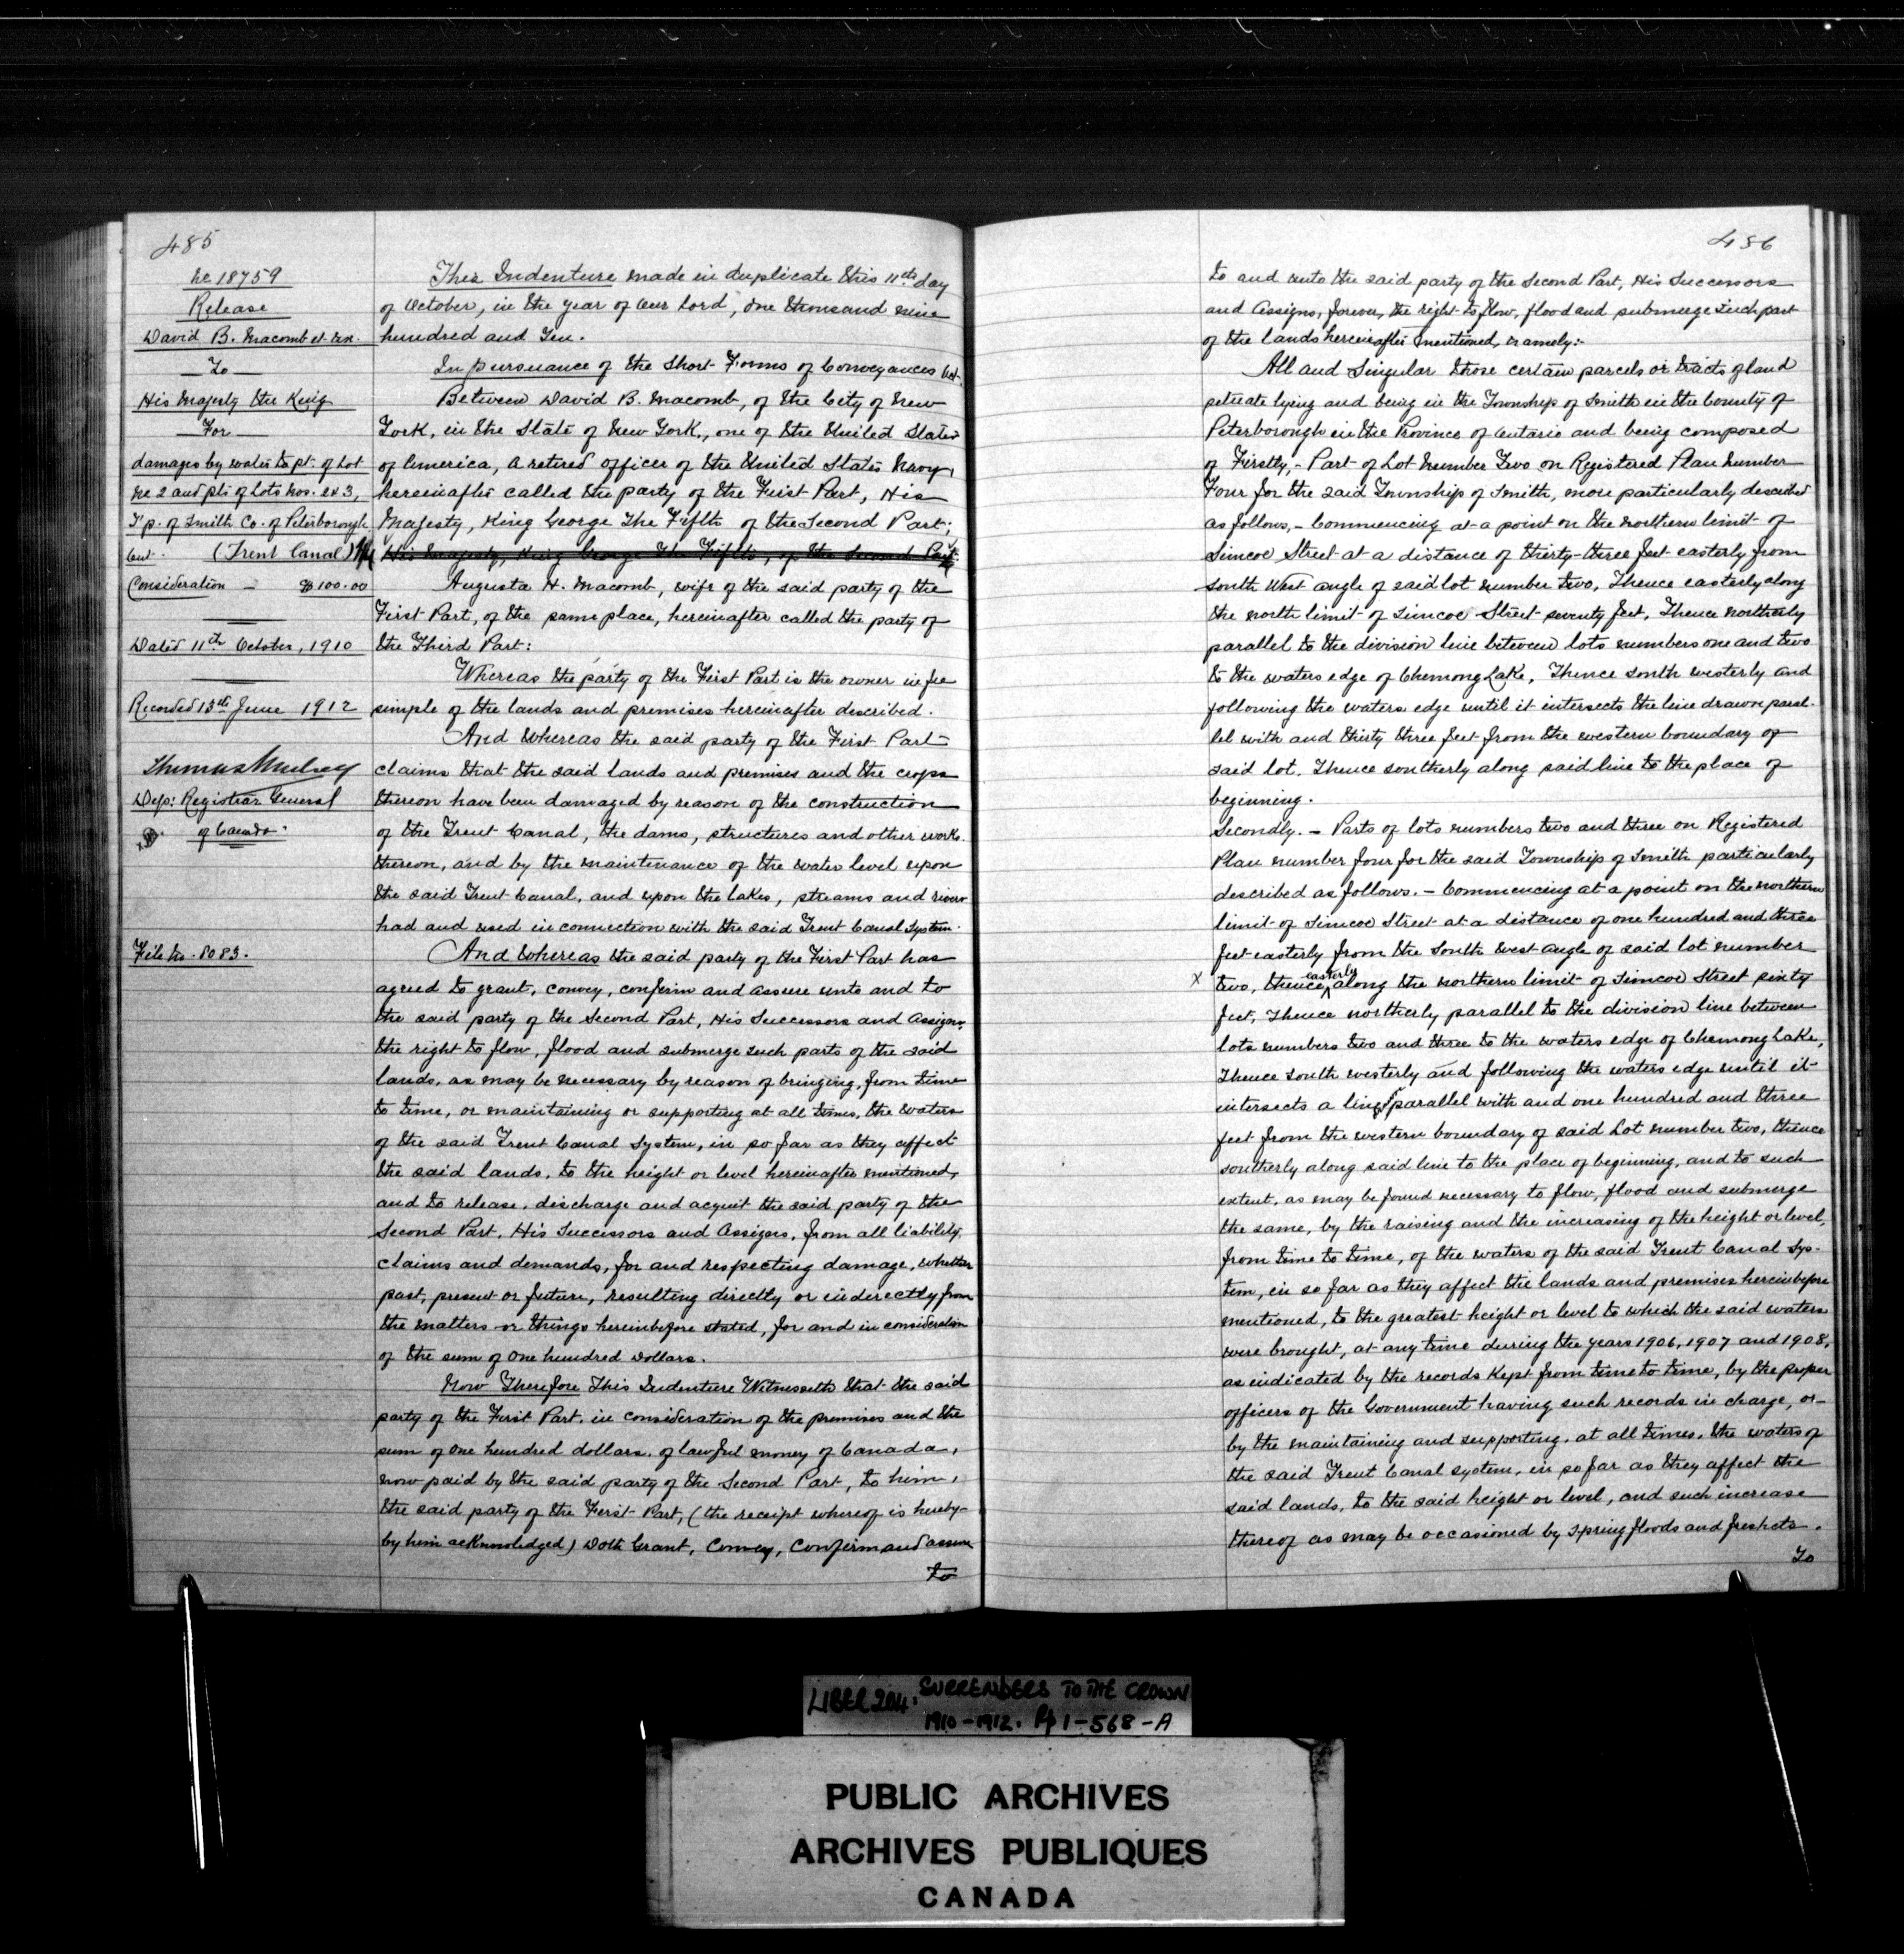 485
No 18759
Release
David B. Macomb et ux.
— To —
His Majesty the King
— For —
damages by water to pt. of Lot
No 2 and pts of Lots Nos. 2 & 3,
T'p. of Smith Co. of Peterborough
Ont. (Trent Canal)
Consideration — $100.00
Dated 11th October, 1910
Recorded 13th June 1912
Thomas Mulvey
Dep: Registrar General
of Canada.
File No. 8083.
This Indenture made in duplicate this 11th day
of October, in the year of Our Lord, one thousand nine
hundred and Ten.
In pursuance of the Short Forms of Conveyances Act.
Between David B. Macomb, of the City of New
York, in the State of New York, one of the United States
of America, a retired officer of the United States Navy,
hereinafter called the party of the First Part, His
Majesty, King George The Fifth of the Second Part;
His Majesty, King George The Fifth, of the Second Part:
Augusta H. Macomb, wife of the said party of the
First Part, of the same place, hereinafter called the party of
the Third Part:
Whereas the party of the First Part is the owner in fee
simple of the lands and premises hereinafter described.
And Whereas the said party of the First Part
claims that the said lands and premises and the crops
thereon have been damaged by reason of the construction
of the Trent Canal, the dams, structures and other works
thereon, and by the maintenance of the water level upon
the said Trent Canal, and upon the lakes, streams and rivers
had and used in connection with the said Trent Canal System.
And Whereas the said party of the First Part has
agreed to grant, convey, confirm and assure unto and to
the said party of the Second Part, His Successors and Assigns,
the right to flow, flood and submerge such parts of the said
lands, as may be necessary by reason of bringing, from time
to time, or maintaining or supporting at all times, the waters
of the said Trent Canal System, in so far as they affect
the said lands, to the height or level hereinafter mentioned,
and to release, discharge and acquit the said party of the
Second Part, His Successors and Assigns, from all liability,
claims and demands, for and respecting damage, whether
past, present or future, resulting directly or indirectly from
the matters or things hereinbefore stated, for and in consideration
of the sum of One hundred Dollars.
Now Therefore This Indenture Witnesseth that the said
party of the First Part, in consideration of the premises and the
sum of One hundred dollars, of lawful money of Canada,
now paid by the said party of the Second Part, to him,
the said party of the First Part, (the receipt whereof is hereby
by him acknowledged) Doth Grant, Convey, Confirm and assure
to
486
to and unto the said party of the Second Part, His Successors
and Assigns, forever, the right to flow, flood and submerge such part
of the lands hereinafter mentioned, namely:-
All and Singular those certain parcels or tracts of land
situate lying and being in the Township of Smith in the County of
Peterborough in the Province of Ontario and being composed
of Firstly,- Part of Lot Number Two on Registered Plan Number
Four for the said Township of Smith, more particularly described
as follows,- Commencing at a point on the northern limit of
Simcoe Street at a distance of thirty-three feet easterly from
South West angle of said lot number two, Thence easterly along
the north limit of Simcoe Street seventy feet, Thence northerly
parallel to the division line between lots numbers one and two
to the waters edge of Chemong Lake, Thence south westerly and
following the waters edge until it intersects the line drawn paral-
lel with and thirty three feet from the western boundary of
said lot. Thence southerly along said line to the place of
beginning.
Secondly.- Parts of lots numbers two and three on Registered
Plan number four for the said Township of Smith particularly
described as follows.- Commencing at a point on the northern
limit of Simcoe Street at a distance of one hundred and three
feet easterly from the South west angle of said lot number
x two, thence easterly along the northern limit of Simcoe Street sixty
feet, Thence northerly parallel to the division line between
lots numbers two and three to the waters edge of Chemong Lake,
Thence south westerly and following the waters edge until it
intersects a line parallel with and one hundred and three
feet from the western boundary of said Lot number two, thence
southerly along said line to the place of beginning, and to such
extent, as may be found necessary to flow, flood and submerge
the same, by the raising and the increasing of the height or level,
from time to time, of the waters of the said Trent Canal Sys-
tem, in so far as they affect the lands and premises hereinbefore
mentioned, to the greatest height or level to which the said waters
were brought, at any time during the years 1906, 1907 and 1908,
as indicated by the records kept from time to time, by the proper
officers of the Government having such records in charge, or
by the maintaining and supporting, at all times, the waters of
the said Trent Canal system, in so far as they affect the
said lands, to the said height or level, and such increase
thereof as may be occasioned by Spring floods and freshets.
To
LIBER 204. SURRENDERS TO THE CROWN
1910-1912. Pp 1-568-A
PUBLIC ARCHIVES
ARCHIVES PUBLIQUES
CANADA